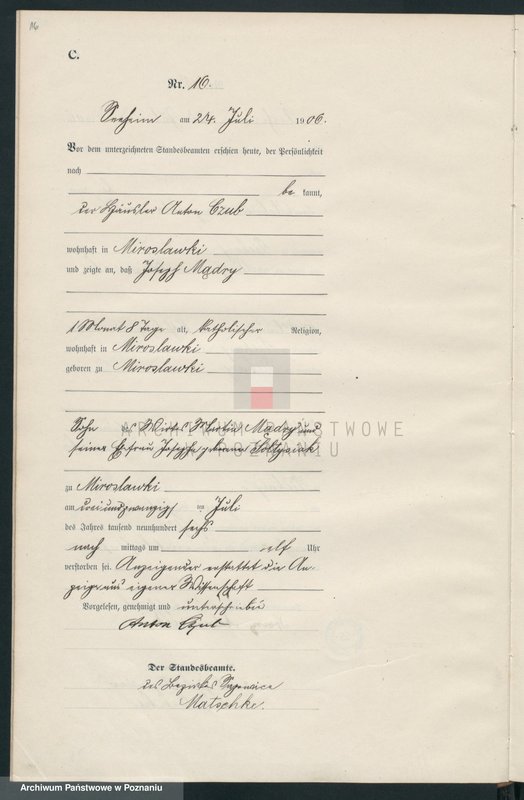 16
C.
Nr. 16.
Seeheim am 24. Juli 1906.
Vor dem unterzeichneten Standesbeamten erschien heute, der Persönlichkeit
nach
be kannt,
der Häusler Anton Czub
wohnhaft in Mirosławki
und zeigte an, daß Joseph Mądry
1 Monat 8 Tage alt, katholischer Religion,
wohnhaft in Mirosławki
geboren zu Mirosławki
ARCHIWUM PAŃSTWOWE
W POZNANIU
Sohn des Wirtes Martin Mądry und
seiner Ehefrau Josepha geborene Sołtysiak
zu Mirosławki
am dreiundzwanzigsten Juli
des Jahres tausend neunhundert sechs
nach mittags um elf Uhr
verstorben sei. Anzeigender erstattet die An-
zeige aus eigener Wissenschaft
Vorgelesen, genehmigt und unterschrieben
Anton Czub
Der Standesbeamte.
des Bezirkes Sapowice
Matschke.
Archiwum Państwowe w Poznaniu